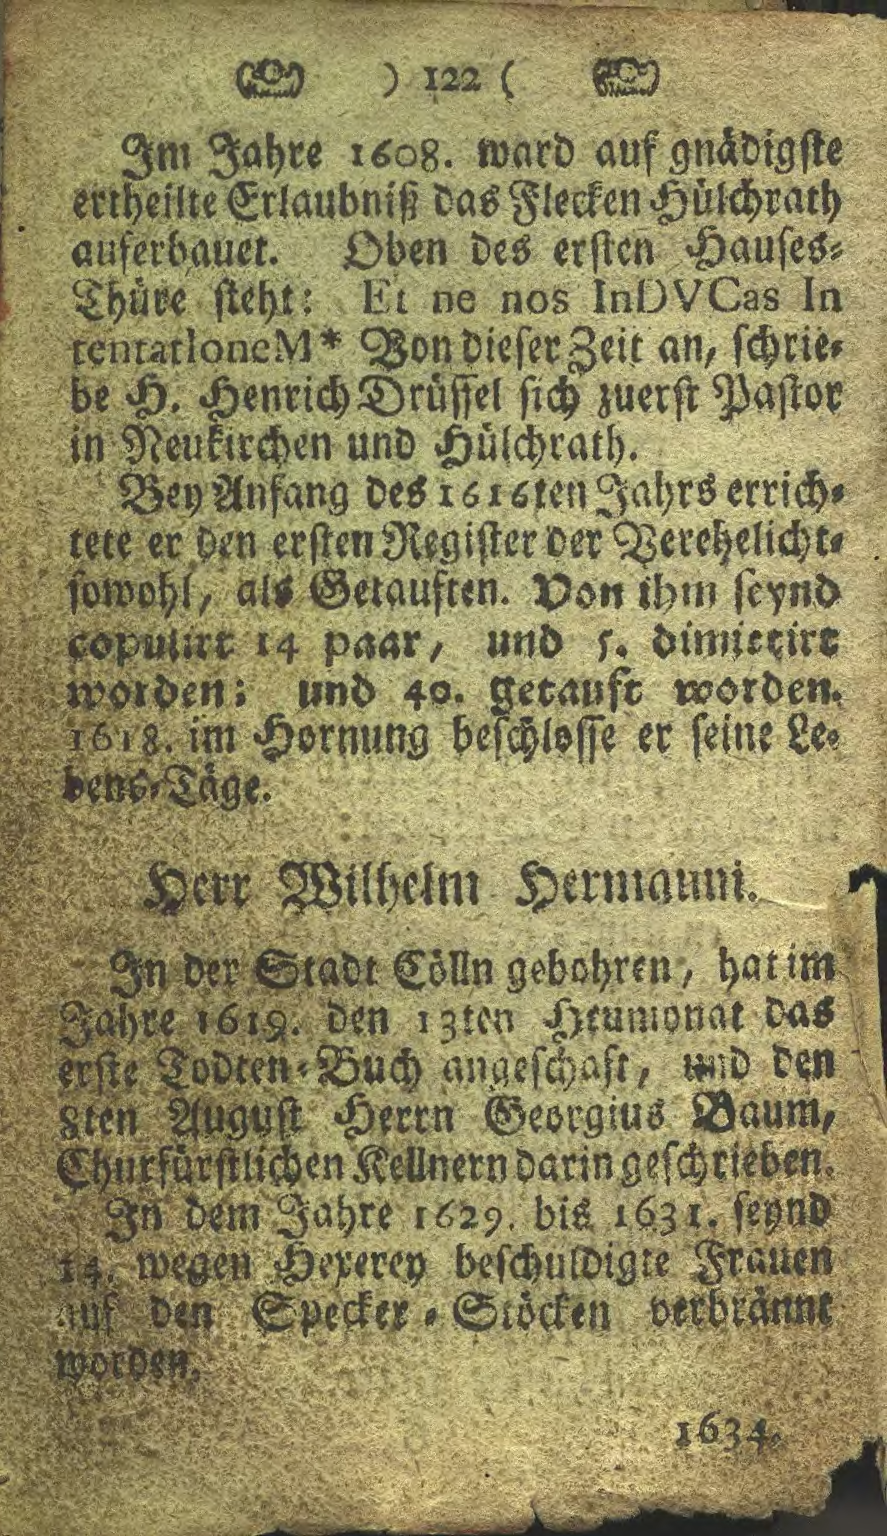 ) 122 (
Im Jahre 1608. ward auf gnädigste
ertheilte Erlaubniß das Flecken Hülchrath
auferbauet. Oben des ersten Hauses-
Thüre steht: Et ne nos InDVCas In
tentatIoneM* Von dieser Zeit an, schrie-
be H. Henrich Drüssel sich zuerst Pastor
in Neukirchen und Hülchrath.
Bey Anfang des 1616ten Jahrs errich-
tete er den ersten Register der Verehelicht-
sowohl, als Getauften. Von ihm seynd
copulirt 14 paar, und 5. dimittirt
worden; und 40. getauft worden.
1618. im Hornung beschlosse er seine Le-
bens-Täge.
Herr Wilhelm Hermanni.
In der Stadt Cölln gebohren, hat im
Jahre 1619. den 13ten Heumonat das
erste Todten-Buch angeschaft, und den
8ten August Herrn Georgius Baum,
Churfürstlichen Kellnern darin geschrieben.
In dem Jahre 1629. bis 1631. seynd
14. wegen Hexerey beschuldigte Frauen
auf den Specker-Stöcken verbrännt
worden.
1634.